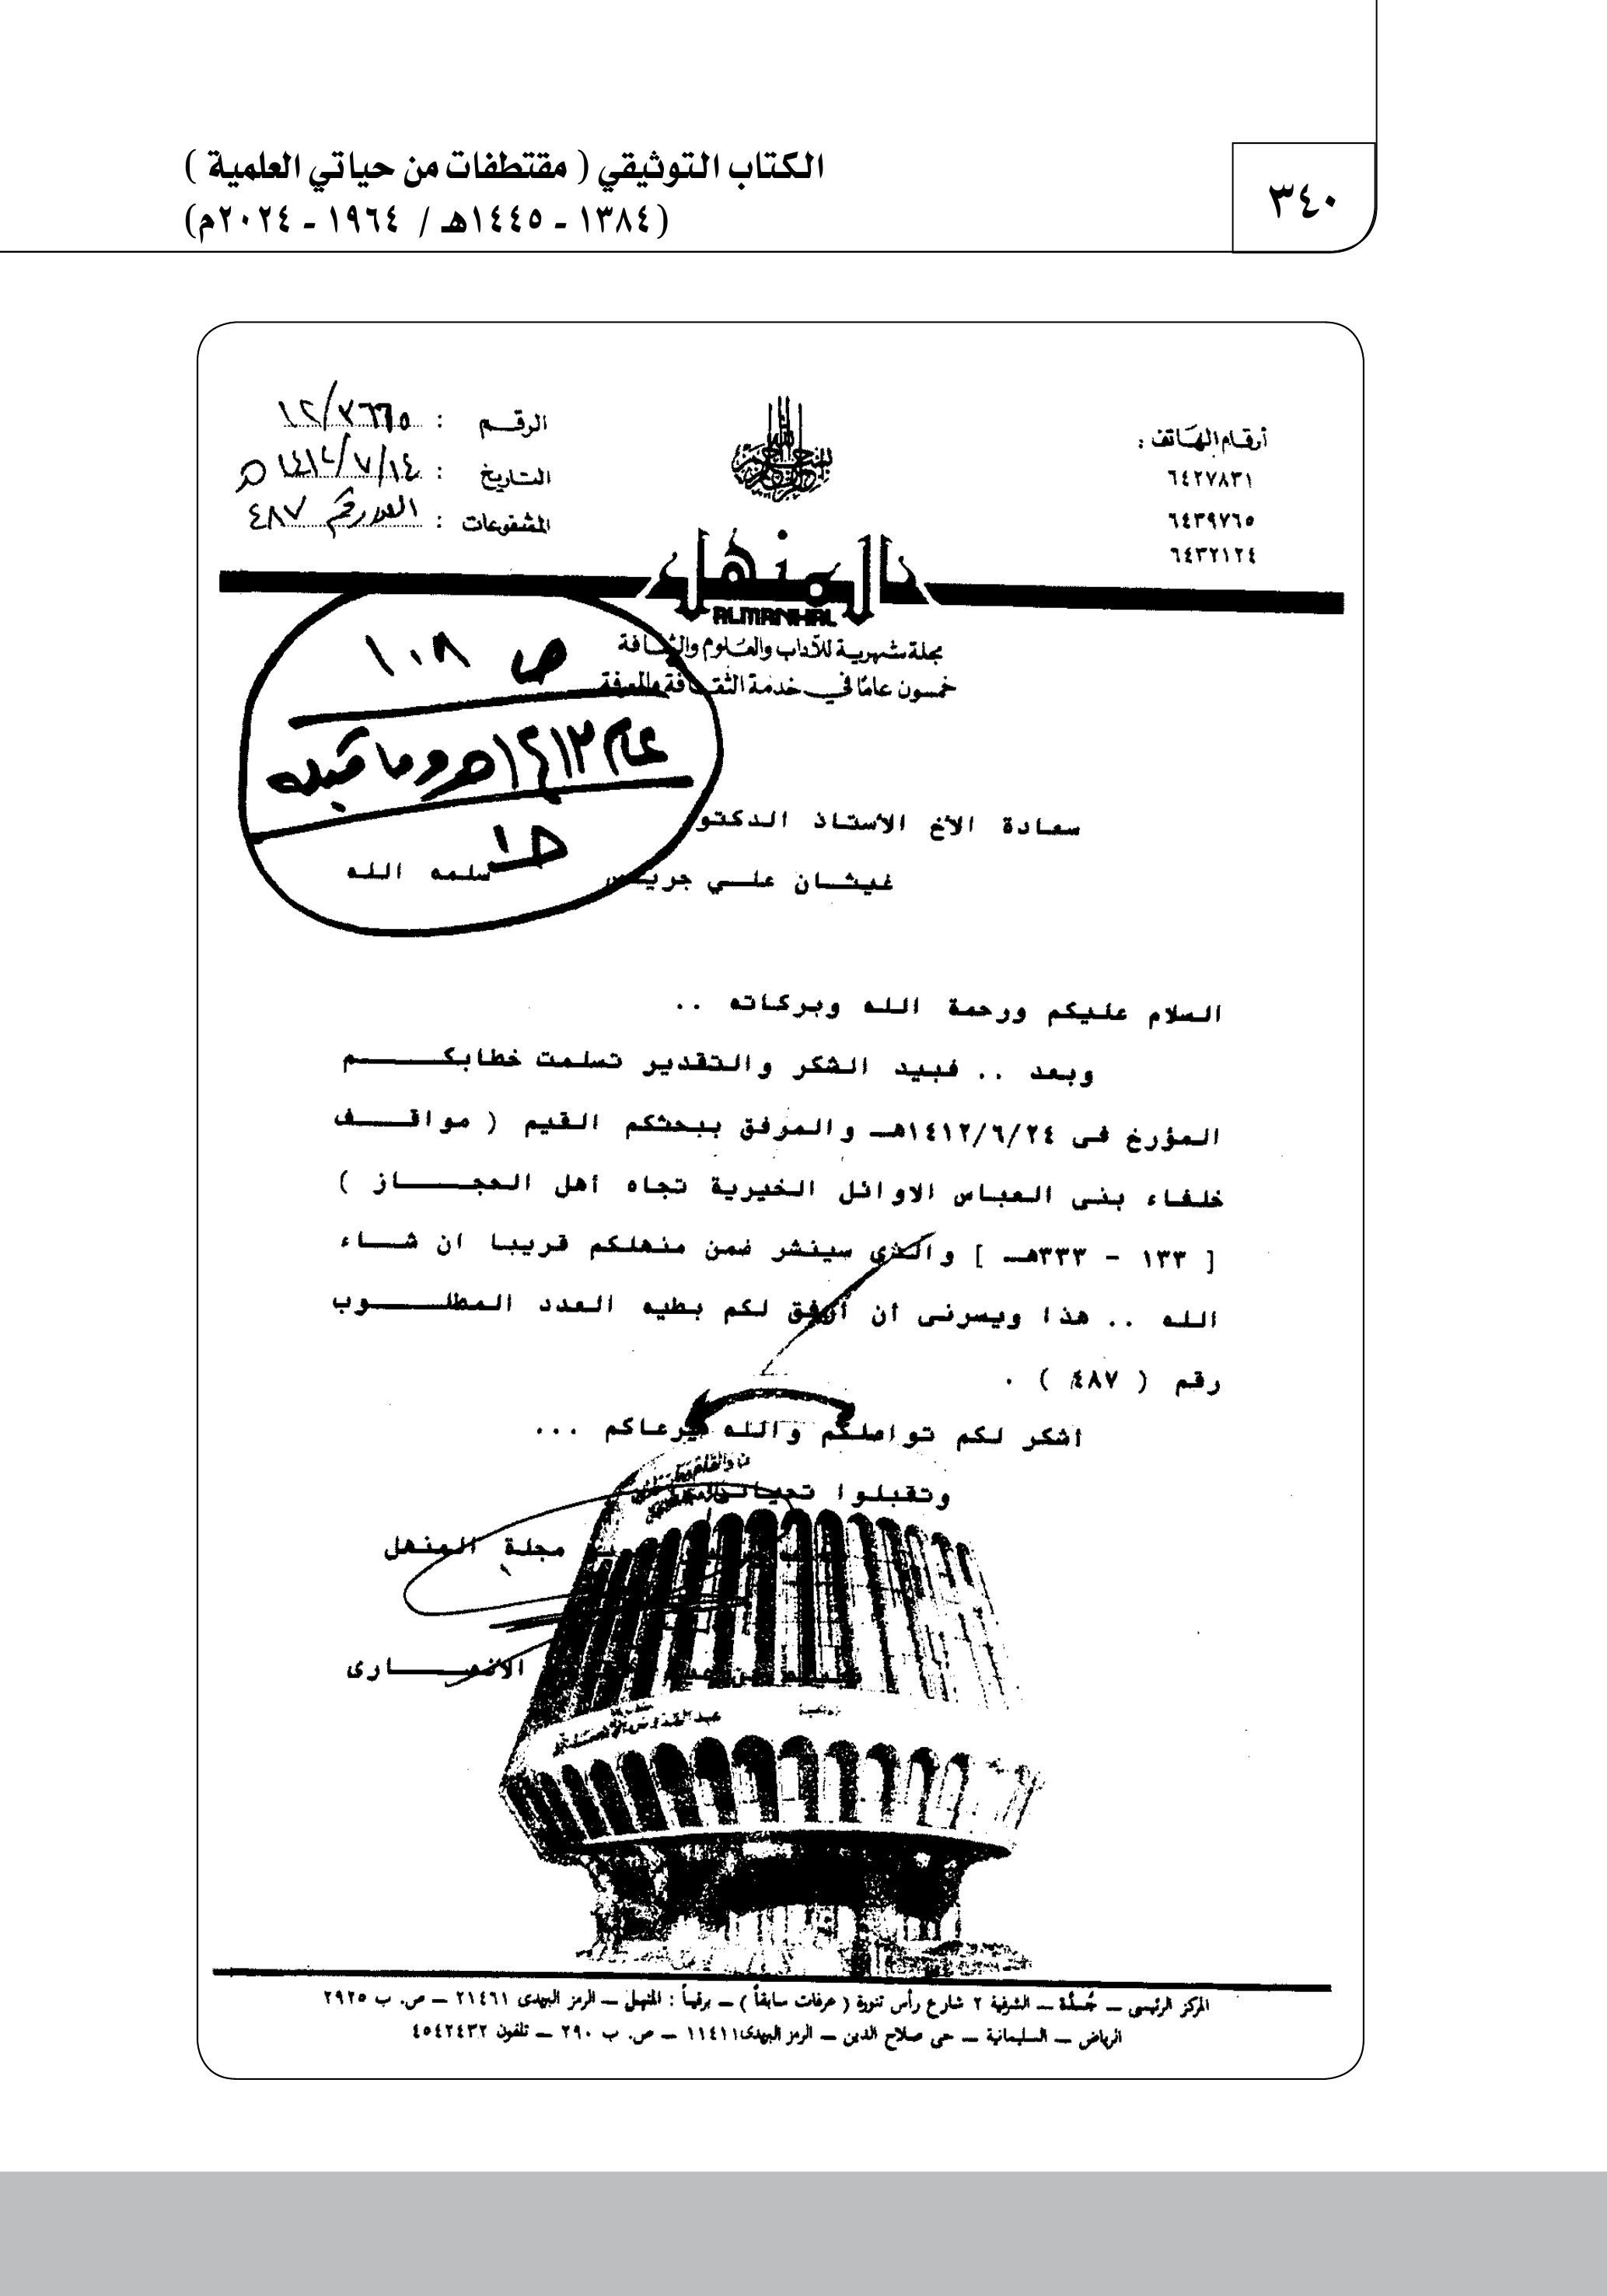 ٣٤٠
الكتاب التوثيقي ( مقتطفات من حياتي العلمية )
(١٣٨٤ ـ ١٤٤٥هـ / ١٩٦٤ ـ ٢٠٢٤م)
أرقام الهاتف :
٦٤٢٧٨٣١
٦٤٣٩٧٦٥
٦٤٣٢١٢٤
الرقم :
التاريخ : ١٤١٢/٧/١٤هـ
المشفوعات : العدد رقم ٤٨٧
المنهل
ALMANHAL
مجلة شهرية للآداب والعلوم والثقافة
خمسون عامًا في خدمة الثقافة والمعرفة
ص ١٠٨
عام ١٤١٣هـ وما قبله
سعادة الأخ الأستاذ الدكتور
غيثان علي جريس سلمه الله
السلام عليكم ورحمة الله وبركاته ..
وبعد .. فبيد الشكر والتقدير تسلمت خطابكم
المؤرخ فى ١٤١٢/٦/٢٤هـ والمرفق ببحثكم القيم ( مواقف
خلفاء بنى العباس الاوائل الخيرية تجاه أهل الحجاز )
[ ١٣٣ - ٣٣٣هـ ] والذى سينشر ضمن منهلكم قريبا ان شاء
الله .. هذا ويسرنى أن أرفق لكم بطيه العدد المطلوب
رقم ( ٤٨٧ ) .
أشكر لكم تواصلكم والله يرعاكم ...
وتقبلوا تحياتى
مجلة المنهل
الأنصارى
عبد القدوس الأنصاري
المركز الرئيسى ــ جُـدَّة ــ الشرفية ٢ شارع رأس تنورة ( عرفات سابقاً ) ــ برقياً : المنهل ــ الرمز البريدى ٢١٤٦١ ــ ص. ب ٢٩٢٥
الرياض ــ السليمانية ــ حى صلاح الدين ــ الرمز البريدى ١١٤١١ ــ ص. ب ٢٩٠ ــ تلفون ٤٥٤٢٤٣٢